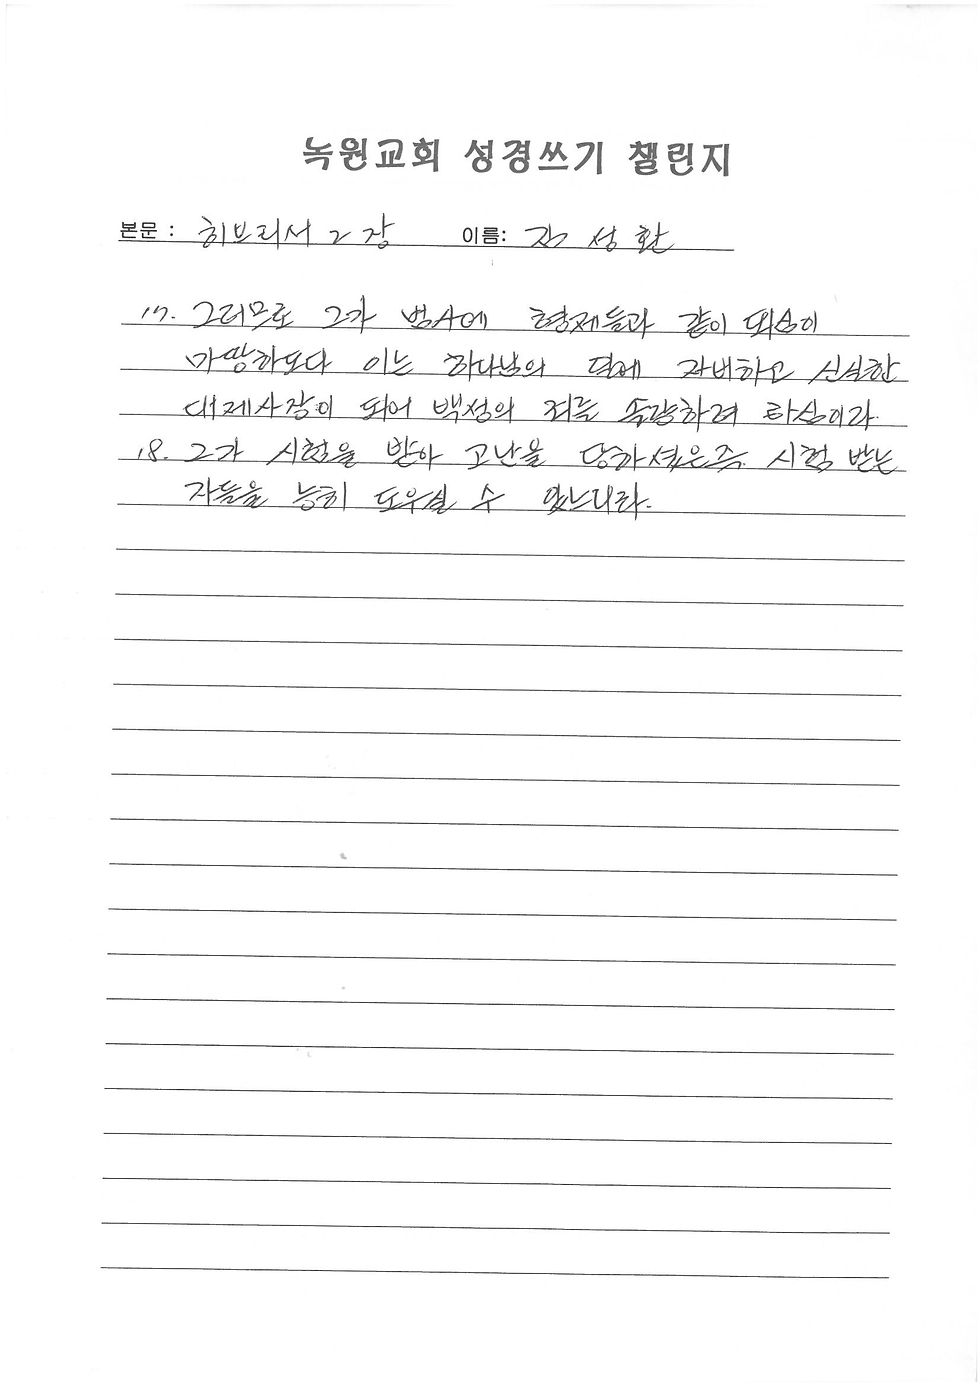 녹원교회 성경쓰기 챌린지
본문 : 히브리서 2장 이름: 성환
17. 그러므로 그가 범사에 형제들과 같이 되심이
마땅하도다 이는 하나님의 일에 자비하고 신실한
대제사장이 되어 백성의 죄를 속량하려 하심이라.
18. 그가 시험을 받아 고난을 당하셨은즉 시험 받는
자들을 능히 도우실 수 있느니라.